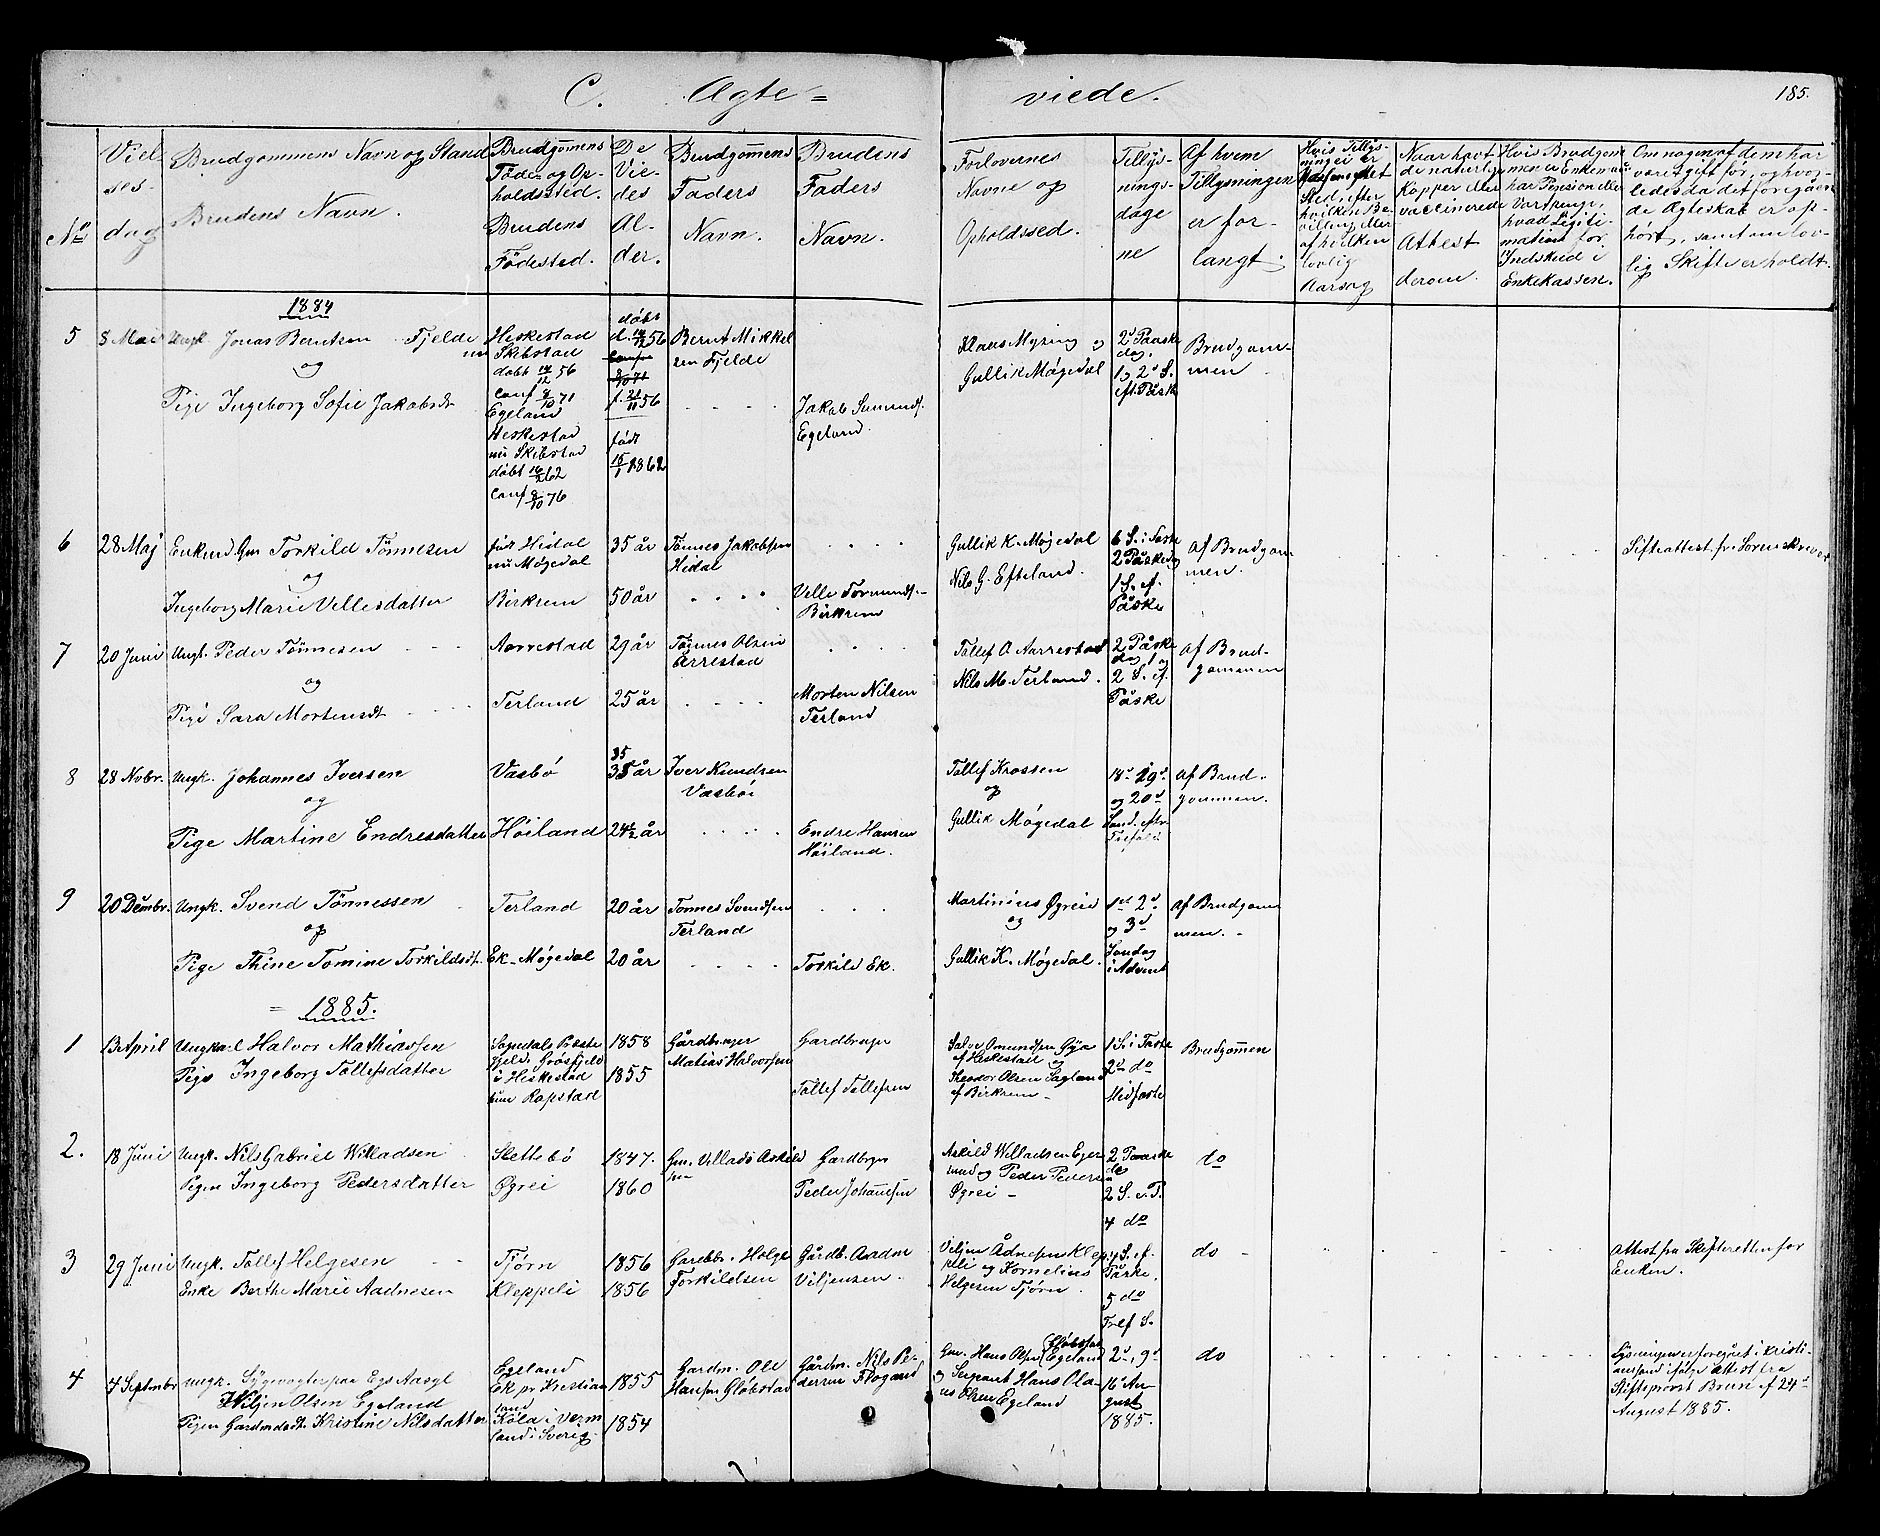 C. Ægte = viede. 185.
No
Viel-
ses-
dag
Brudgommens Navn og Stand
Brudens Navn.
Brudgom̄ens
Føde- og Op-
holdssted.
Brudens
Fødested.
De
Vie-
des
Al-
der.
Brudgom̄ens
Faders
Navn.
Brudens
Faders
Navn.
Forlovernes
Navne og
Opholdssed.
Tillys-
nings-
dage
ne
Af hvem
Tillysningen
er for-
langt.
Hvis Tillys-
ninger er
Sted, efter
hvilken Be-
villing eller
af hvilken
lovlig
Aarsag
Naar havt
de naturlige
Kopper eller
vaccinerede
Attest
derom.
Hvis Brudgom-
men er Enkeman
har Pension eller
Vartpenge,
hvad Legiti-
mation for
Indskud i
Enkekassen.
Om nogen af dem har
været gift før, og hvor-
ledes da det foregaaen-
de Ægteskab er op-
hørt, samt om lov-
lig Skifte er holdt.
1884
5 8 Mai Ungk Jonas Berntsen Fjelde
og
Pige Ingeborg Sofie Jakobsdt
Heskestad
nu Skibstad
døbt 14/12 56
Conf 8/10 71
Egeland
Heskestad
nu Skibstad
døbt 16/2 62
Conf 8/10 76
døbt
d. 14/12 56
Conf
8/10 71
f. 21/11 56
født
15/1 1862
Bernt Mikkel
sen Fjelde
Jakob Sumunds.
Egeland.
Klaus Mysing og
Gullik Møgedal
2d Paaske
dag.
1 og 2 S.
eft. Påsk
Brudgom-
men
6 28 Maj Enkmd. Gm Torkild Tönnesen
og
Ingeborg Marie Vellesdatter
født Hidal
nu Møgedal
Birkrem
35 år
50 år
Tönnes Jakobsen
Hidal
Velle Tormunds.
Birkrem
Gullik K. Møgedal
Nils G. Efteland.
6 S. i Faste
2 Påskedag
1 S. ef.
Påske
af Brudgom
men.
Sifteattest fr. Sorenskriver
7 20 Juni Ungk. Peder Tönnesen
og
Pige Sara Mortensdt
Aarrestad
Terland
29 år
25 år
Tönnes Olsen
Årrestad
Morten Nilsen
Terland
Tallef O. Aarrestad
Nils M. Terland.
2 Påske
dag 1 og
2 S. ef.
Påske
af Brud-
gommen
8 28 Novbr. Ungk. Johannes Iversen
og
Pige Martine Endresdatter
Vasbø
Höiland
35
35 år
24½ år
Iver Knudsen
Vasbøi
Endre Hansen
Höiland.
Tallef Krossen
og
Gullik Møgedal
18d 19d
og 20d
Sønd. efter
Trefold.
af Brud-
gommen.
9 20 Dembr. Ungk. Svend Tönnessen
og
Pige Thine Tomine Torkildsdt.
Terland
Ek-Møgedal
20 år
20 år
Tonnes Svendsen
Terland
Torkild Ek.
Martinius Øgreid
og
Gullik K. Møgedal.
1st 2d
og 3d
Søndag
i Advent
af Brudgom
men.
1885.
1 13 April Ungkarl Halvor Mathiassen
Pige Ingeborg Tollefsdatter
Sognedals Præste
gjeld. Gråsfjeld
i Heskestad
Rapstad
1858
1855
Gårdbruger
Matias Halvorsen
Gardbruger
Tallef Tollefsen
Salve Omundsen Gya
af Heskestad og
Theodor Olsen Sagland
af Birkrem
1 S. i Faste
2den do
Midfaste
Brudgom̄en
2. 18 Juni Ungk. Nils Gabriel Willadsen
Pigen Ingeborg Pedersdatter
Slettebö
Øgrei
1847.
1860
Gm. Villads Askild
sen
Gardbrgn
Peder Johansen
Askild Willadsen Eger
sund og Peder Pedersen
Øgrei
2 Paaske
dg
2 S. e. P.
4 do
do
3 29 Juni Ungk. Tallef Helgesen
Enke Berthe Marie Aadnesen
Tjörn
Kleppeli
1856
1856
Gardbr. Helge
Torkildsen
Gårdb. Aadne
Viljensen.
Viljen Ådnesen Klep
peli og Kornelius
Helgesen Tjörn.
4 S. ef.
Påske.
5 do
Tref S.
do
Attest fra Skifteretten for
Enken.
4 4 Septmbr Ungk. Sygevogter paa Egs Aasyl
Wiljen Olsen Egeland
Pigen Gardmdadt. Kristine Nilsdatter
Egeland
Ek pr Kristian
sand
Köla i Verm
land i Sverig
1855
1854
Gardm. Ole
Hansen Glöbstad
Gårdm. Nils Pe-
dersen Flogand
Gm. Hans Olsen Glöbstad
(Egeland
og Sergeant Hans Ola-
us Olsen Egeland
2d, 9d
16 Au-
gust
1885.
do
Lysningen er foregået i Kristi-
ansand ifølge Attest fra
Stiftsprovst Brun af 24d
August 1885.